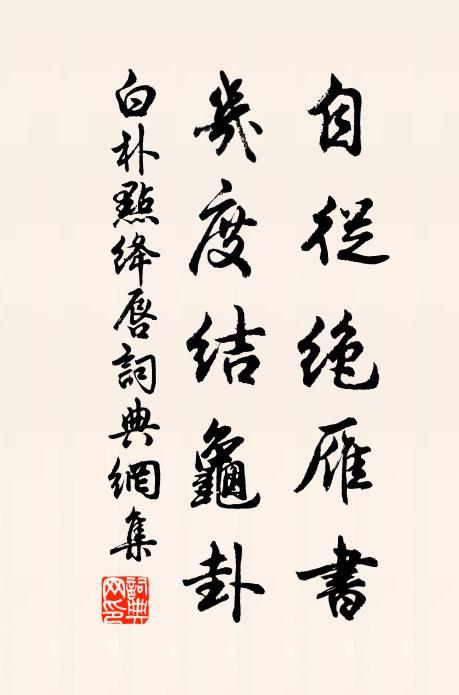 自從絶雁書
幾度結龜卦
白朴點絳唇詞典網集
詞典网印